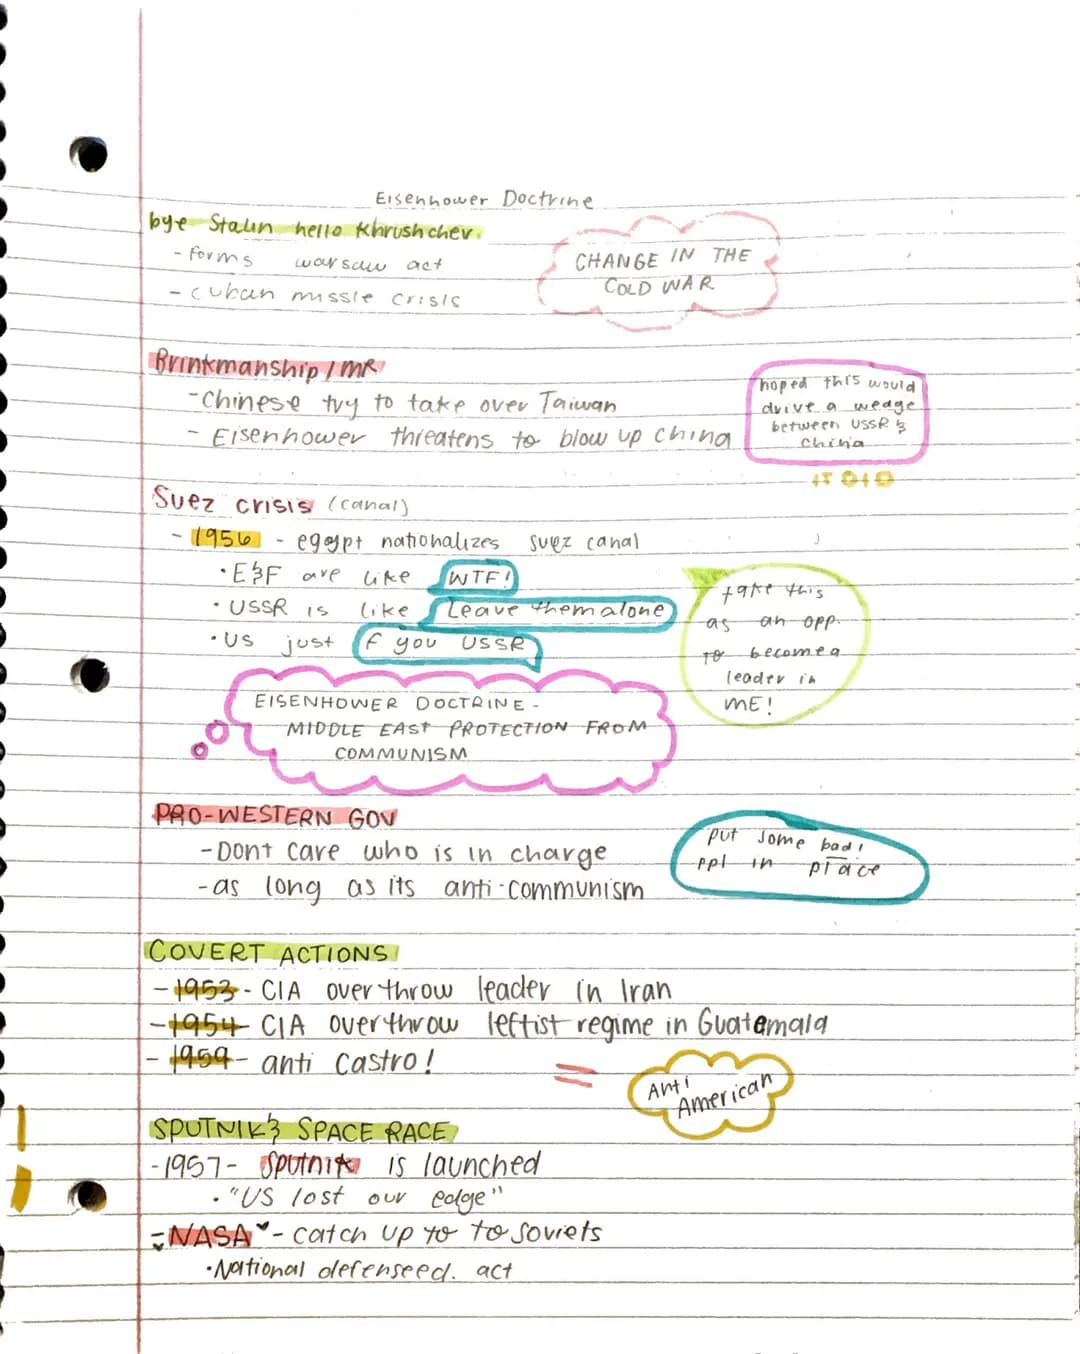 Eisenhower Doctrine
bye Stalin hello Khrushchev.
- forms warsaw act
- cuban missle crisis
CHANGE IN THE
COLD WAR
Brinkmanship / MR
- Chinese try to take over Taiwan
- Eisenhower threatens to blow up china
hoped this would
drive a wedge
between USSR &
china
IT DID
Suez crisis (canal)
- 1956 - egypt nationalizes suez canal
• E&F are like WTF!
• USSR is like Leave them alone
• US just f you USSR
take this
as an opp.
to become a
leader in
ME!
EISENHOWER DOCTRINE -
MIDDLE EAST PROTECTION FROM
COMMUNISM
PRO-WESTERN GOV
- Dont care who is in charge
- as long as its anti-communism
put some bad
ppl in place
COVERT ACTIONS
- 1953 - CIA overthrow leader in Iran
- 1954 - CIA overthrow leftist regime in Guatemala
- 1959 - anti Castro!
= Anti
American
SPUTNIK & SPACE RACE
- 1957 - Sputnik is launched
• "US lost our edge"
- NASA - catch up to to Soviets
• National defense ed. act